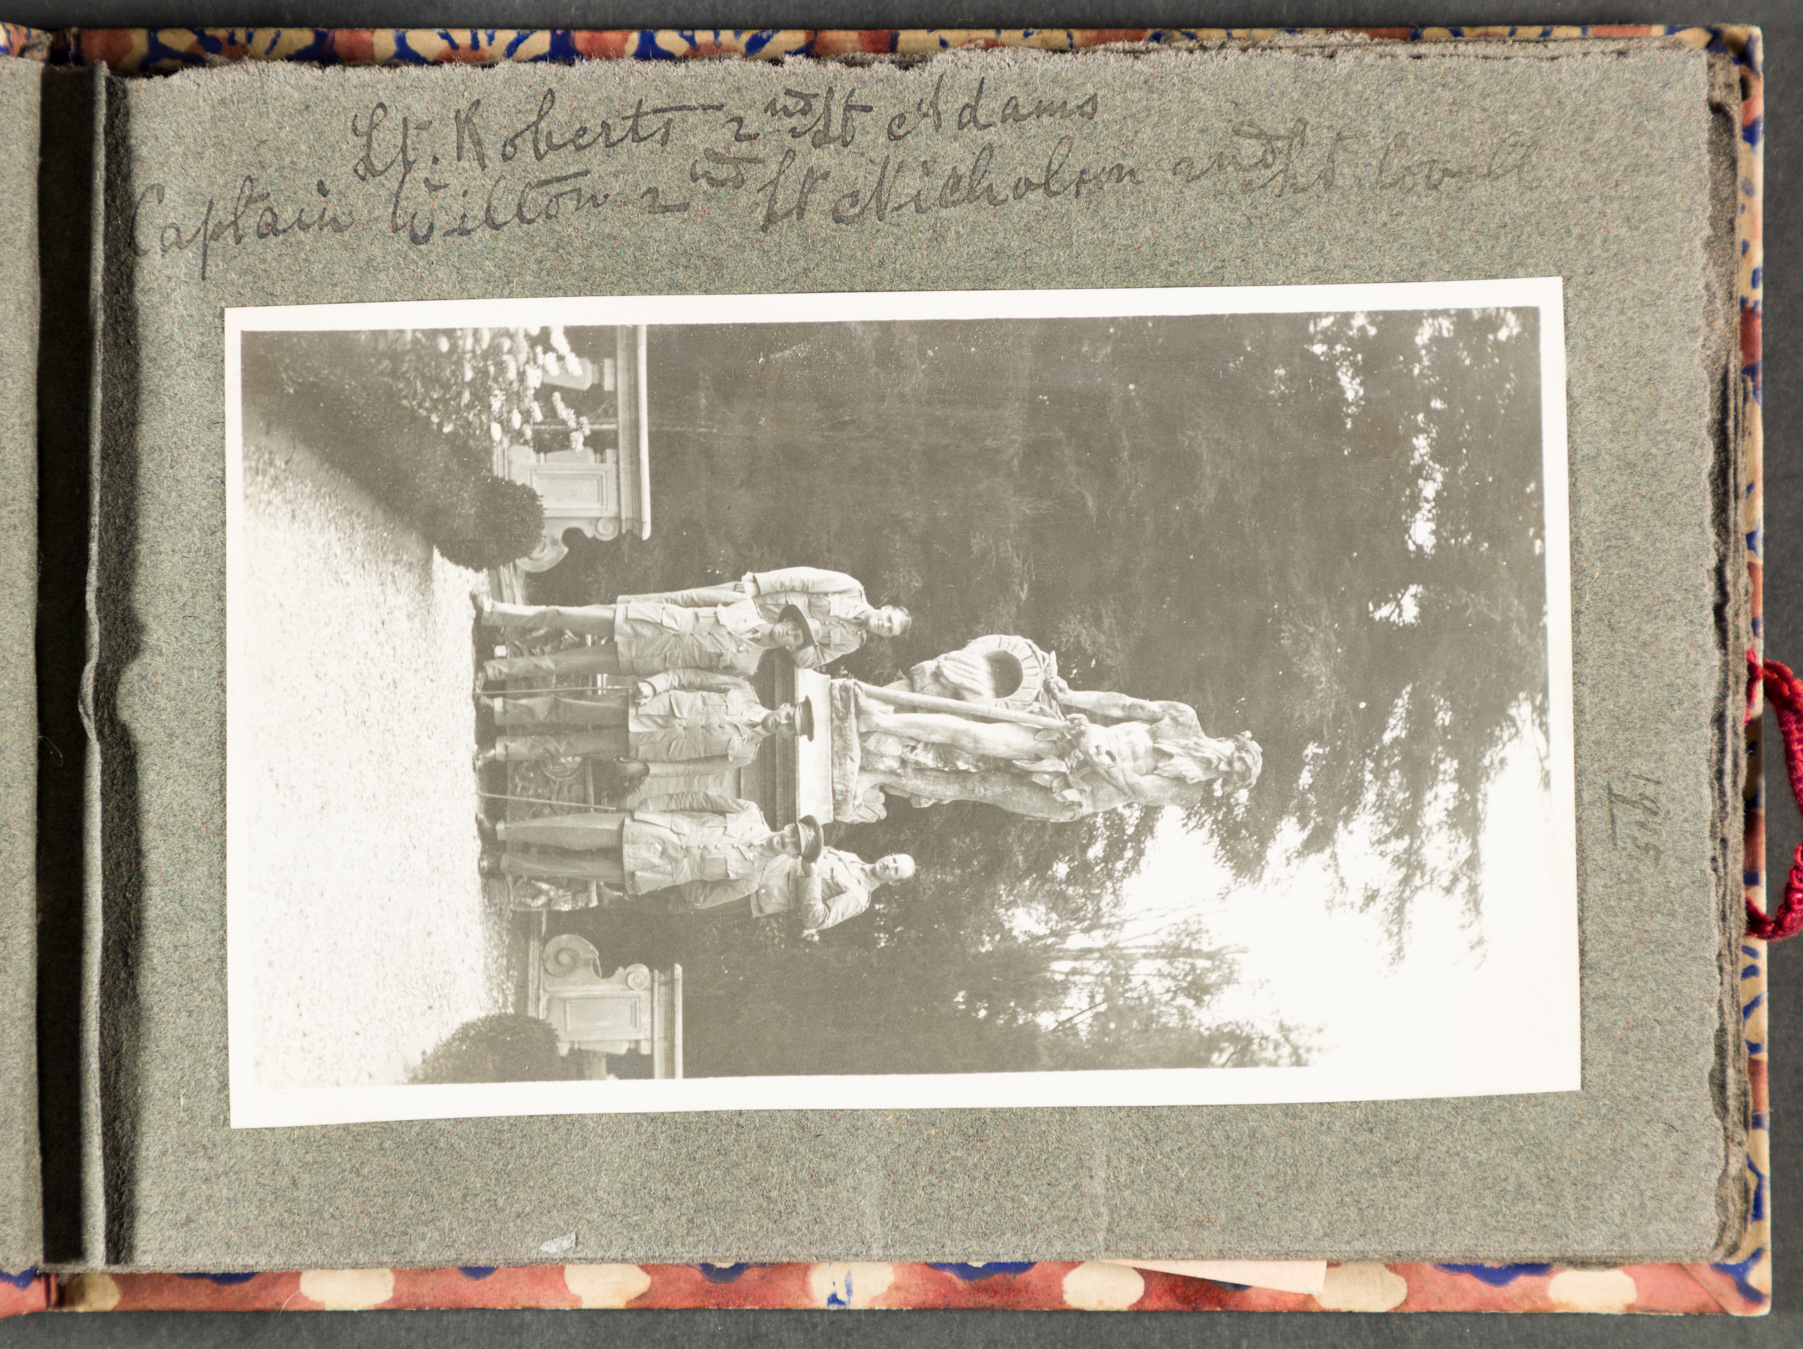 Lt. Roberts 2nd Lt Adams
Captain Wilton 2nd Lt Nicholson 2nd Lt. Covell